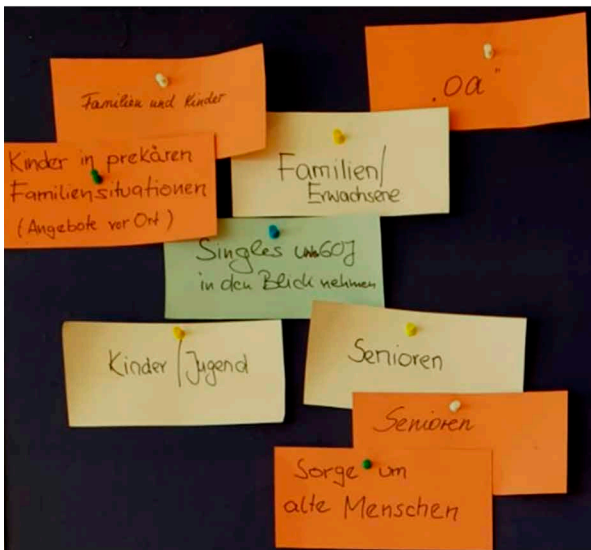 Familien und Kinder
„oa"
Kinder in prekären
Familiensituationen
(Angebote vor Ort)
Familien/
Erwachsene
Singles 60J
in den Blick nehmen
Kinder/Jugend
Senioren
Senioren
Sorge um
alte Menschen